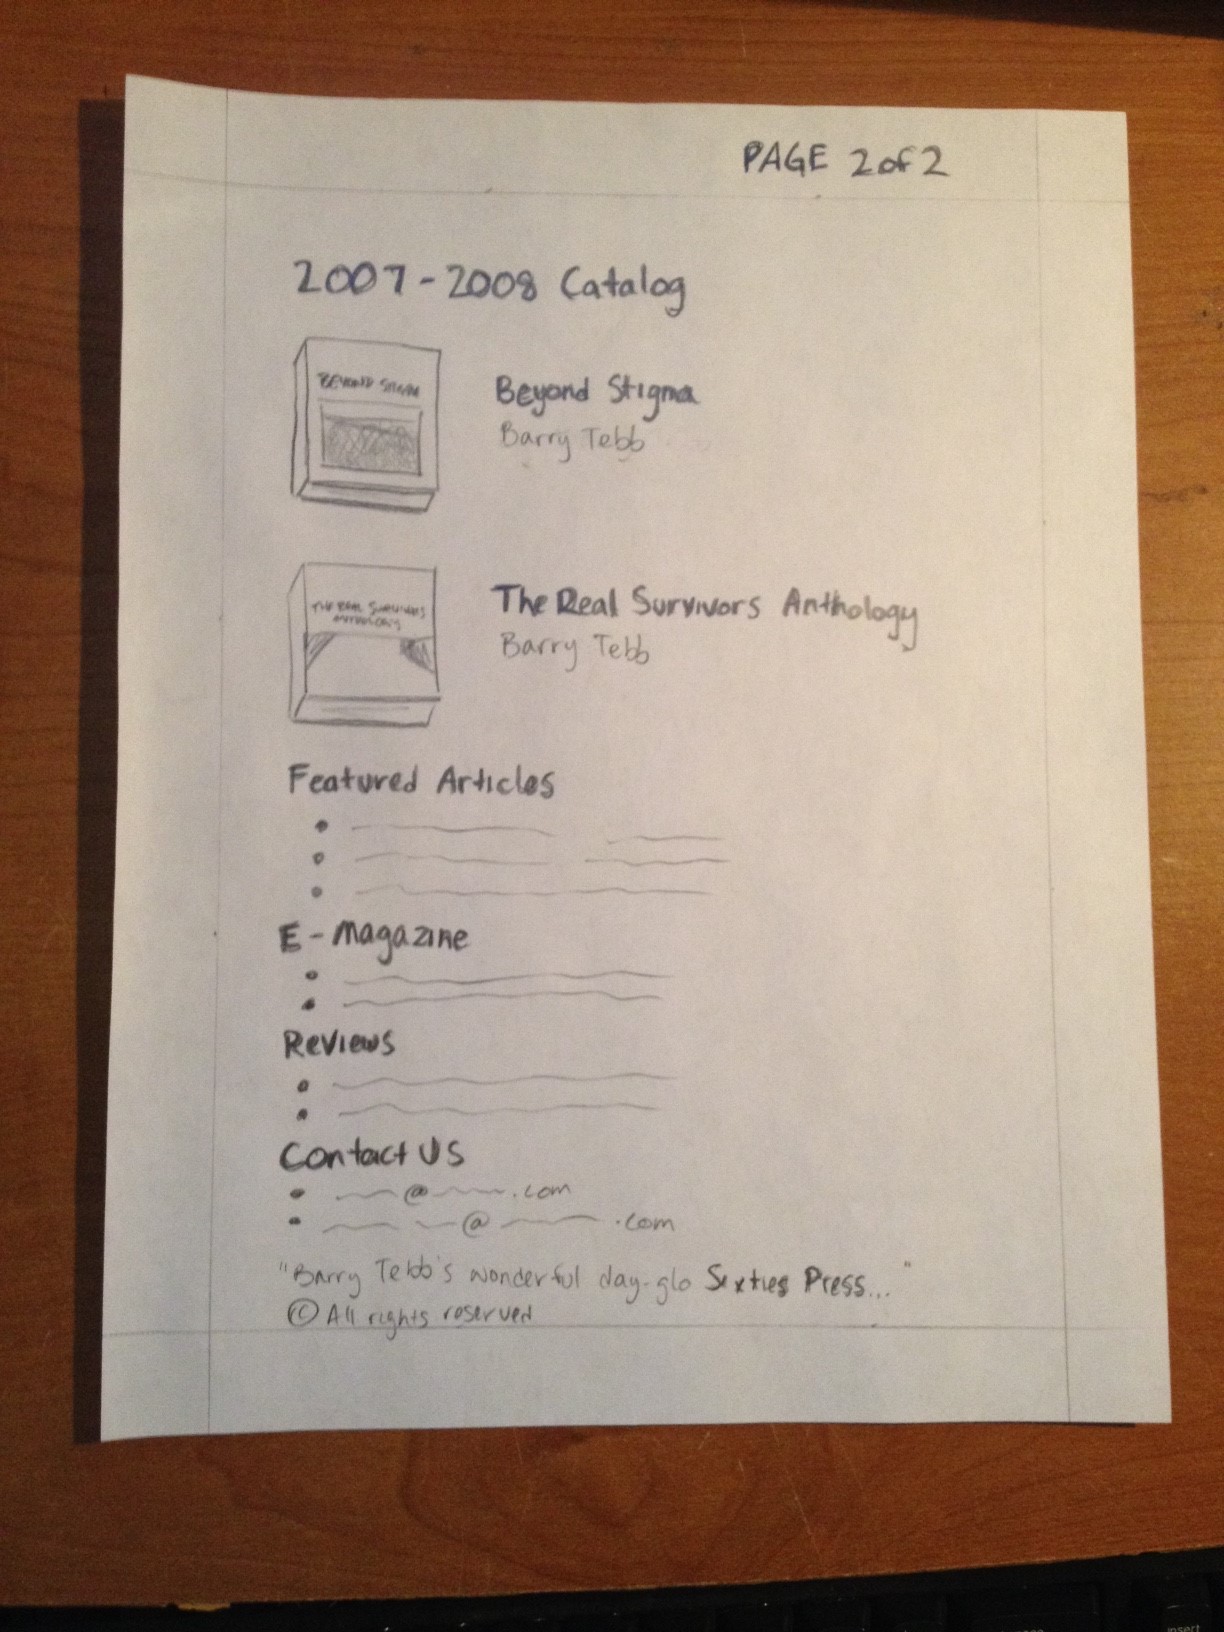 PAGE 2 of 2
2007-2008 Catalog
BEYOND STIGMA
Beyond Stigma
Barry Tebb
THE REAL SURVIVORS
ANTHOLOGY
The Real Survivors Anthology
Barry Tebb
Featured Articles
E-magazine
Reviews
Contact Us
@ .com
@ .com
"Barry Tebb's wonderful day-glo Sixties Press..."
© All rights reserved
insert